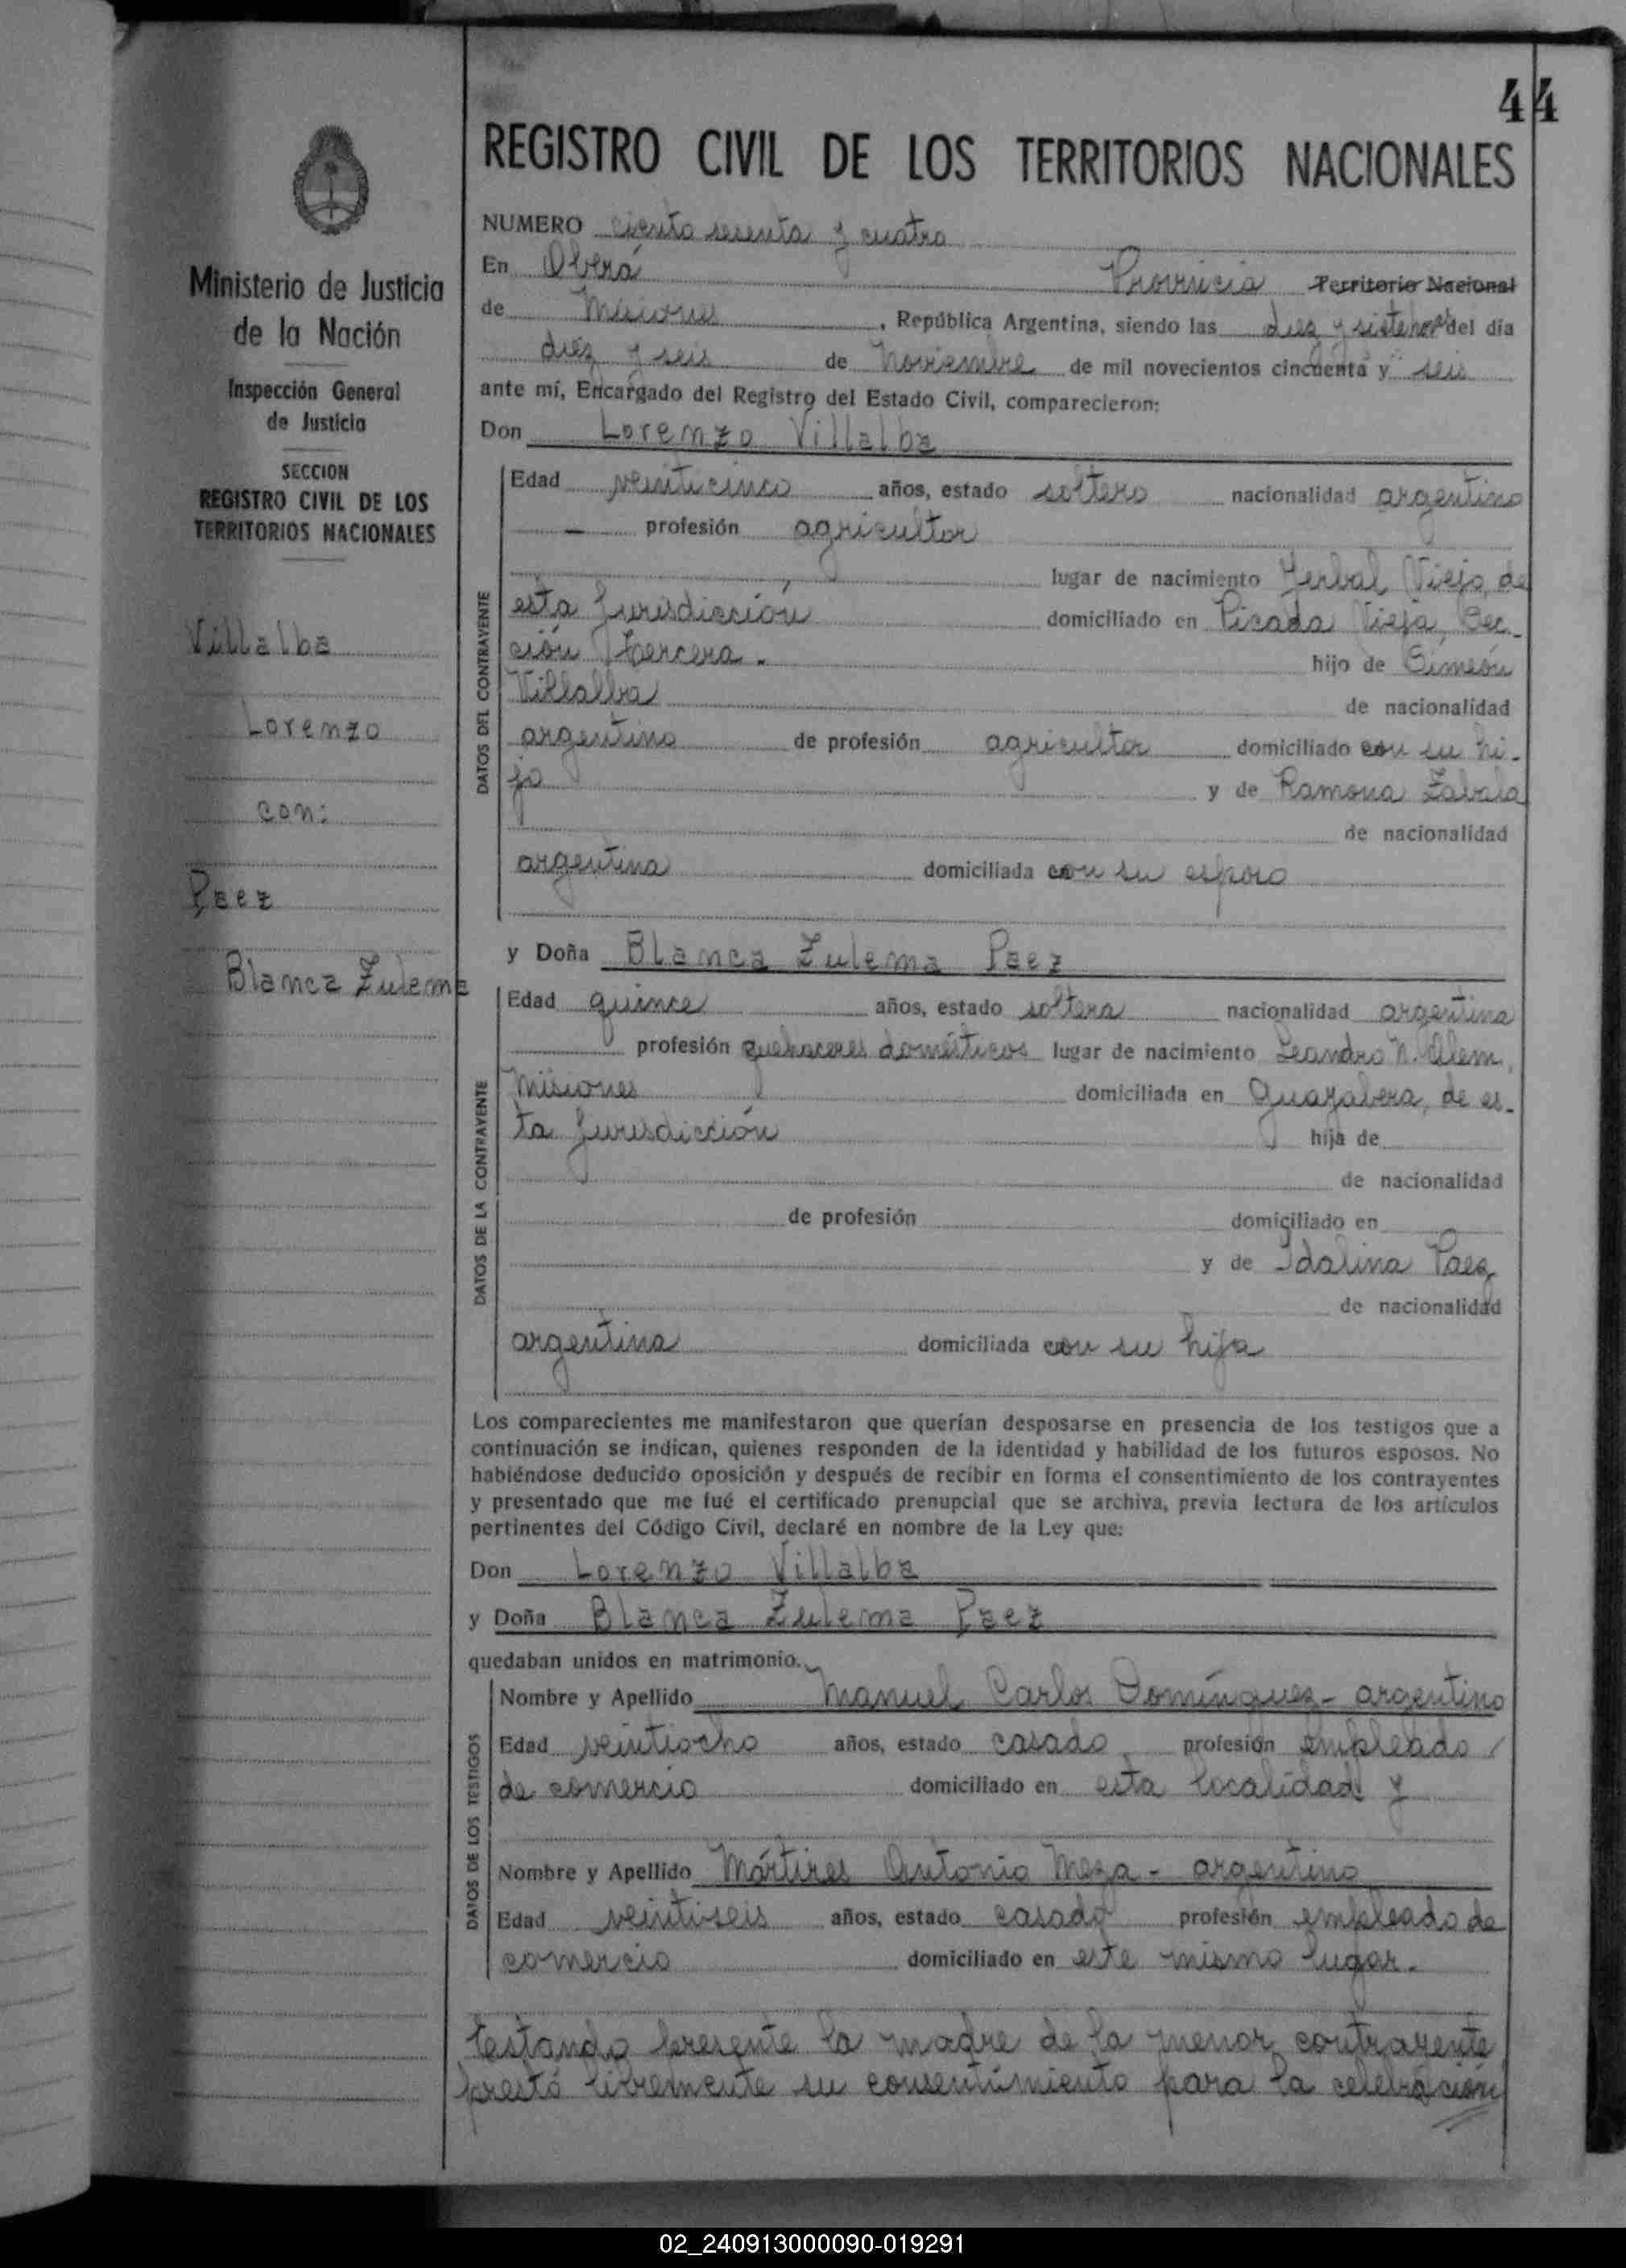 44
REGISTRO CIVIL DE LOS TERRITORIOS NACIONALES
Ministerio de Justicia
de la Nación
Inspección General
de Justicia
SECCION
REGISTRO CIVIL DE LOS
TERRITORIOS NACIONALES
Villalba
Lorenzo
con:
Paez
Blanca Zulema
NUMERO ciento sesenta y cuatro
En Oberá Provincia Territorio Nacional
de Misiones, República Argentina, siendo las diez y siete hors del día
diez y seis de Noviembre de mil novecientos cincuenta y seis
ante mí, Encargado del Registro del Estado Civil, comparecieron:
Don Lorenzo Villalba
DATOS DEL CONTRAYENTE
Edad veinticinco años, estado soltero nacionalidad argentino
— profesión agricultor
lugar de nacimiento Yerbal Viejo, de
esta Jurisdicción domiciliado en Picada Vieja, Sec-
ción Tercera.- hijo de Simeón
Villalba de nacionalidad
argentino de profesión agricultor domiciliado con su hi-
jo y de Ramona Zabala
de nacionalidad
argentina domiciliada con su esposo
y Doña Blanca Zulema Paez
DATOS DE LA CONTRAYENTE
Edad quince años, estado soltera nacionalidad argentina
profesión quehaceres domésticos lugar de nacimiento Leandro N. Alem,
Misiones domiciliada en Guayabera, de es-
ta Jurisdicción hija de
de nacionalidad
de profesión domiciliado en
y de Idalina Paez
de nacionalidad
argentina domiciliada con su hija
Los comparecientes me manifestaron que querían desposarse en presencia de los testigos que a
continuación se indican, quienes responden de la identidad y habilidad de los futuros esposos. No
habiéndose deducido oposición y después de recibir en forma el consentimiento de los contrayentes
y presentado que me fué el certificado prenupcial que se archiva, previa lectura de los artículos
pertinentes del Código Civil, declaré en nombre de la Ley que:
Don Lorenzo Villalba
y Doña Blanca Zulema Paez
quedaban unidos en matrimonio.
DATOS DE LOS TESTIGOS
Nombre y Apellido Manuel Carlos Domínguez - argentino
Edad veintiocho años, estado casado profesión empleado
de comercio domiciliado en esta localidad y
Nombre y Apellido Mártires Antonio Meza - argentino
Edad veintiseis años, estado casado profesión empleado de
comercio domiciliado en este mismo lugar.-
presente la madre de la menor contrayente
prestó libremente su consentimiento para la celebración
02_240913000090-019291